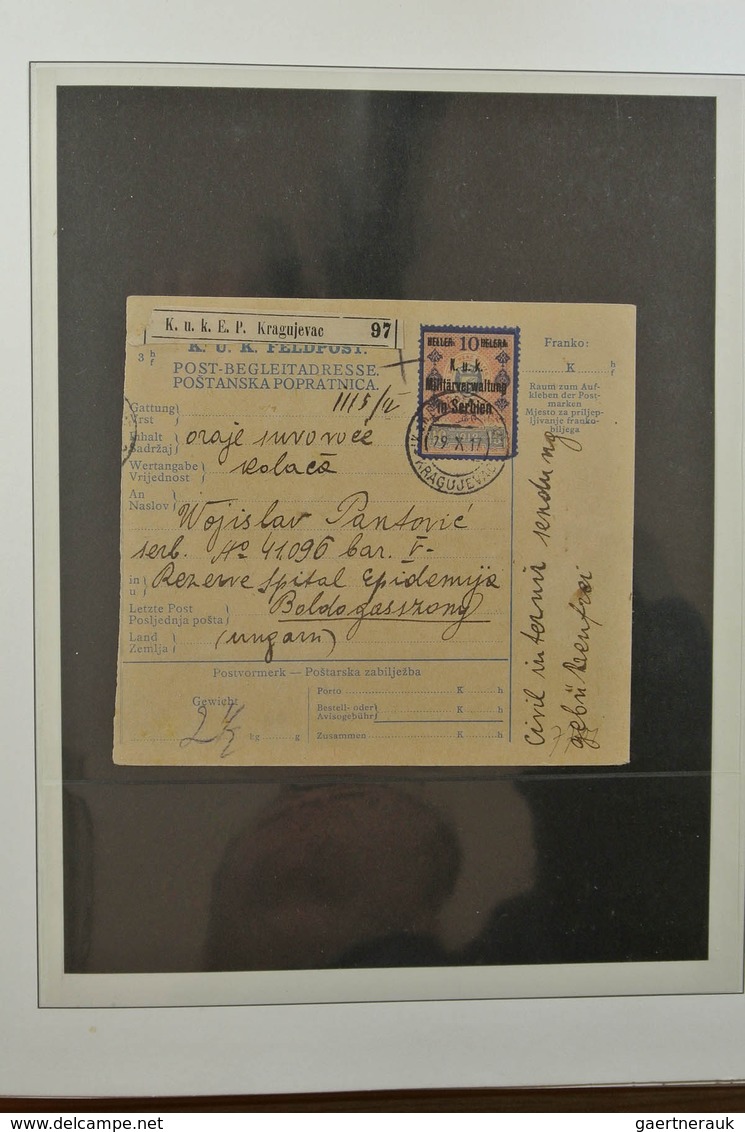 K. u. k. E. P. Kragujevac 97
K. U. K. FELDPOST.
POST-BEGLEITADRESSE.
POŠTANSKA POPRATNICA.
3 h
f
HELLER 10 HELERA
K. u. k.
Militärverwaltung
in Serbien
29 X 17
KRAGUJEVAC
Franko:
K h
f
Raum zum Auf-
kleben der Post-
marken
Mjesto za priljep-
ljivanje franko-
biljega
Gattung
Vrst
Inhalt
Sadržaj
Wertangabe
Vrijednost
kolača
An
Naslov
Wojislav Pantović
serb. No 41.096 bar. V-
in
u
Rezerve Spital Epidemija
Letzte Post
Posljednja pošta
Boldogasszony
Land
Zemlja
(Ungarn)
Postvormerk — Poštarska zabilježba
Gewicht
kg g
Porto K h
Bestell- oder
Avisogebühr K h
Zusammen K h
Civil internir sendung
gebührenfrei
gaertnerauk